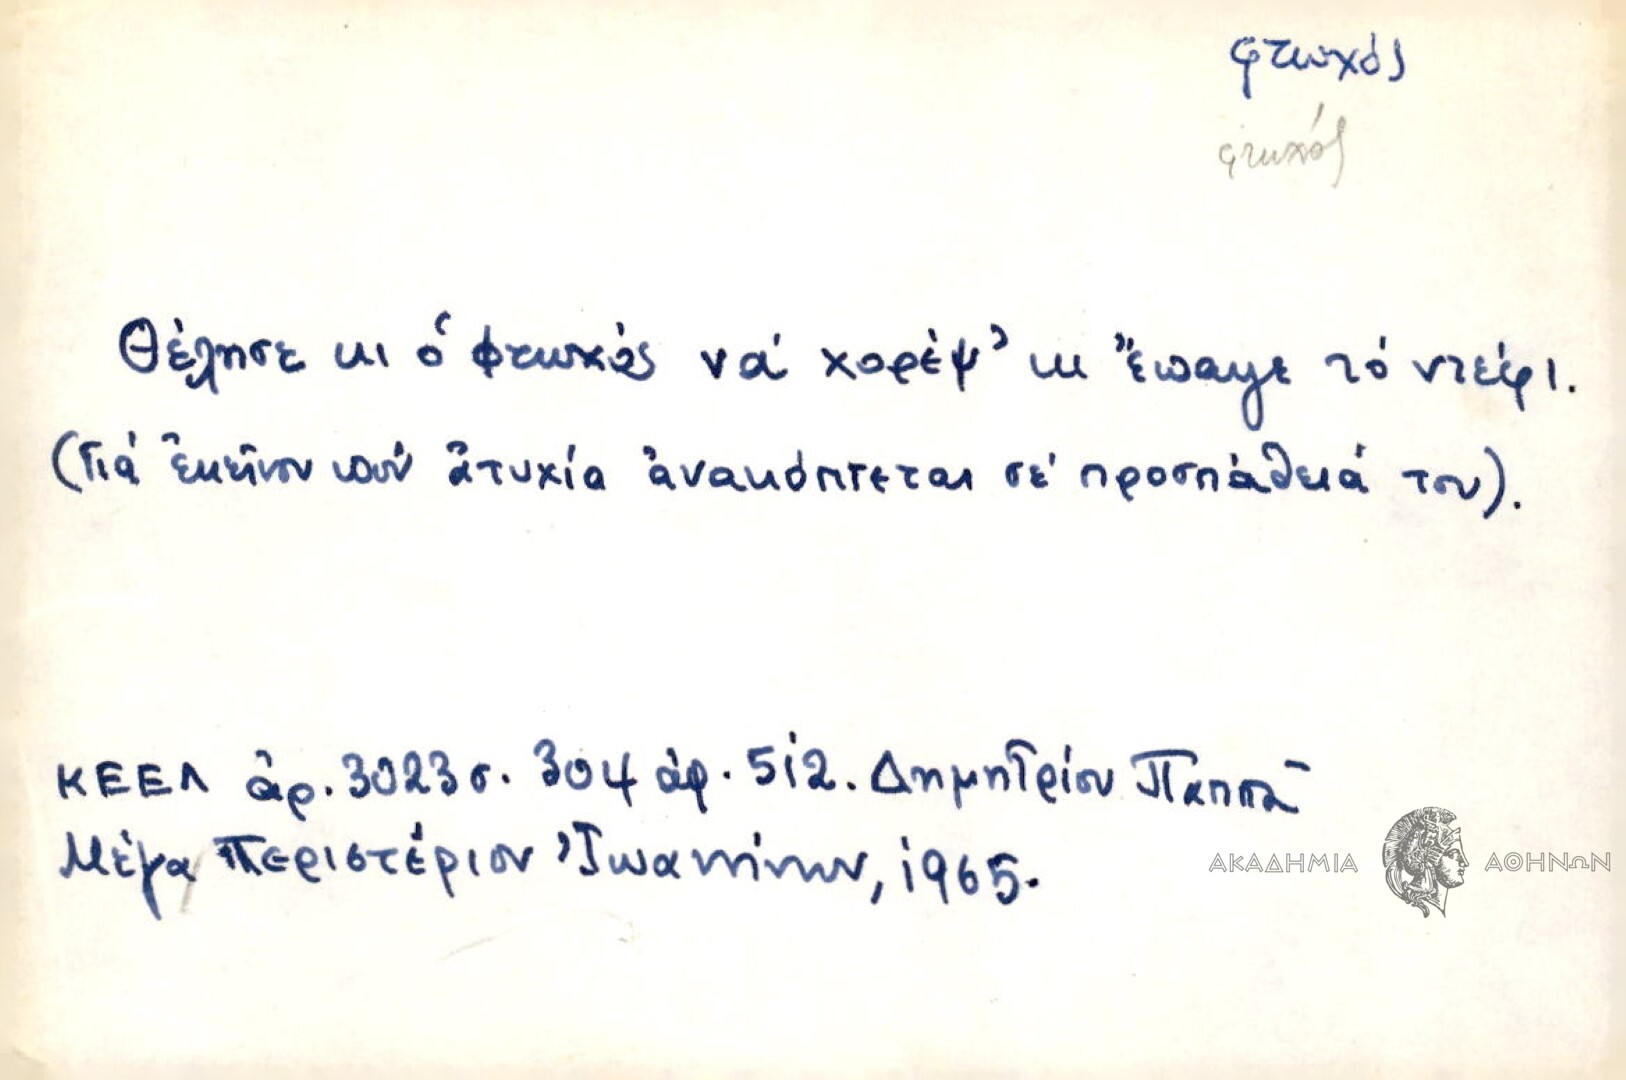 φτωχός
φτωχός
Θέλησε κι ὁ φτωχός νά χορέψ' κι ἔσπαγε τό ντέφι.
(Γιά ἐκεῖνον πού ἀτυχία ἀνακόπτεται σέ προσπάθειά του).
ΚΕΕΛ ἀρ. 3023 σ. 304 ἀρ. 512. Δημητρίου Παππᾶ
Μέγα Περιστέριον Ἰωαννίνων, 1965.
ΑΚΑΔΗΜΙΑ ΑΘΗΝΩΝ